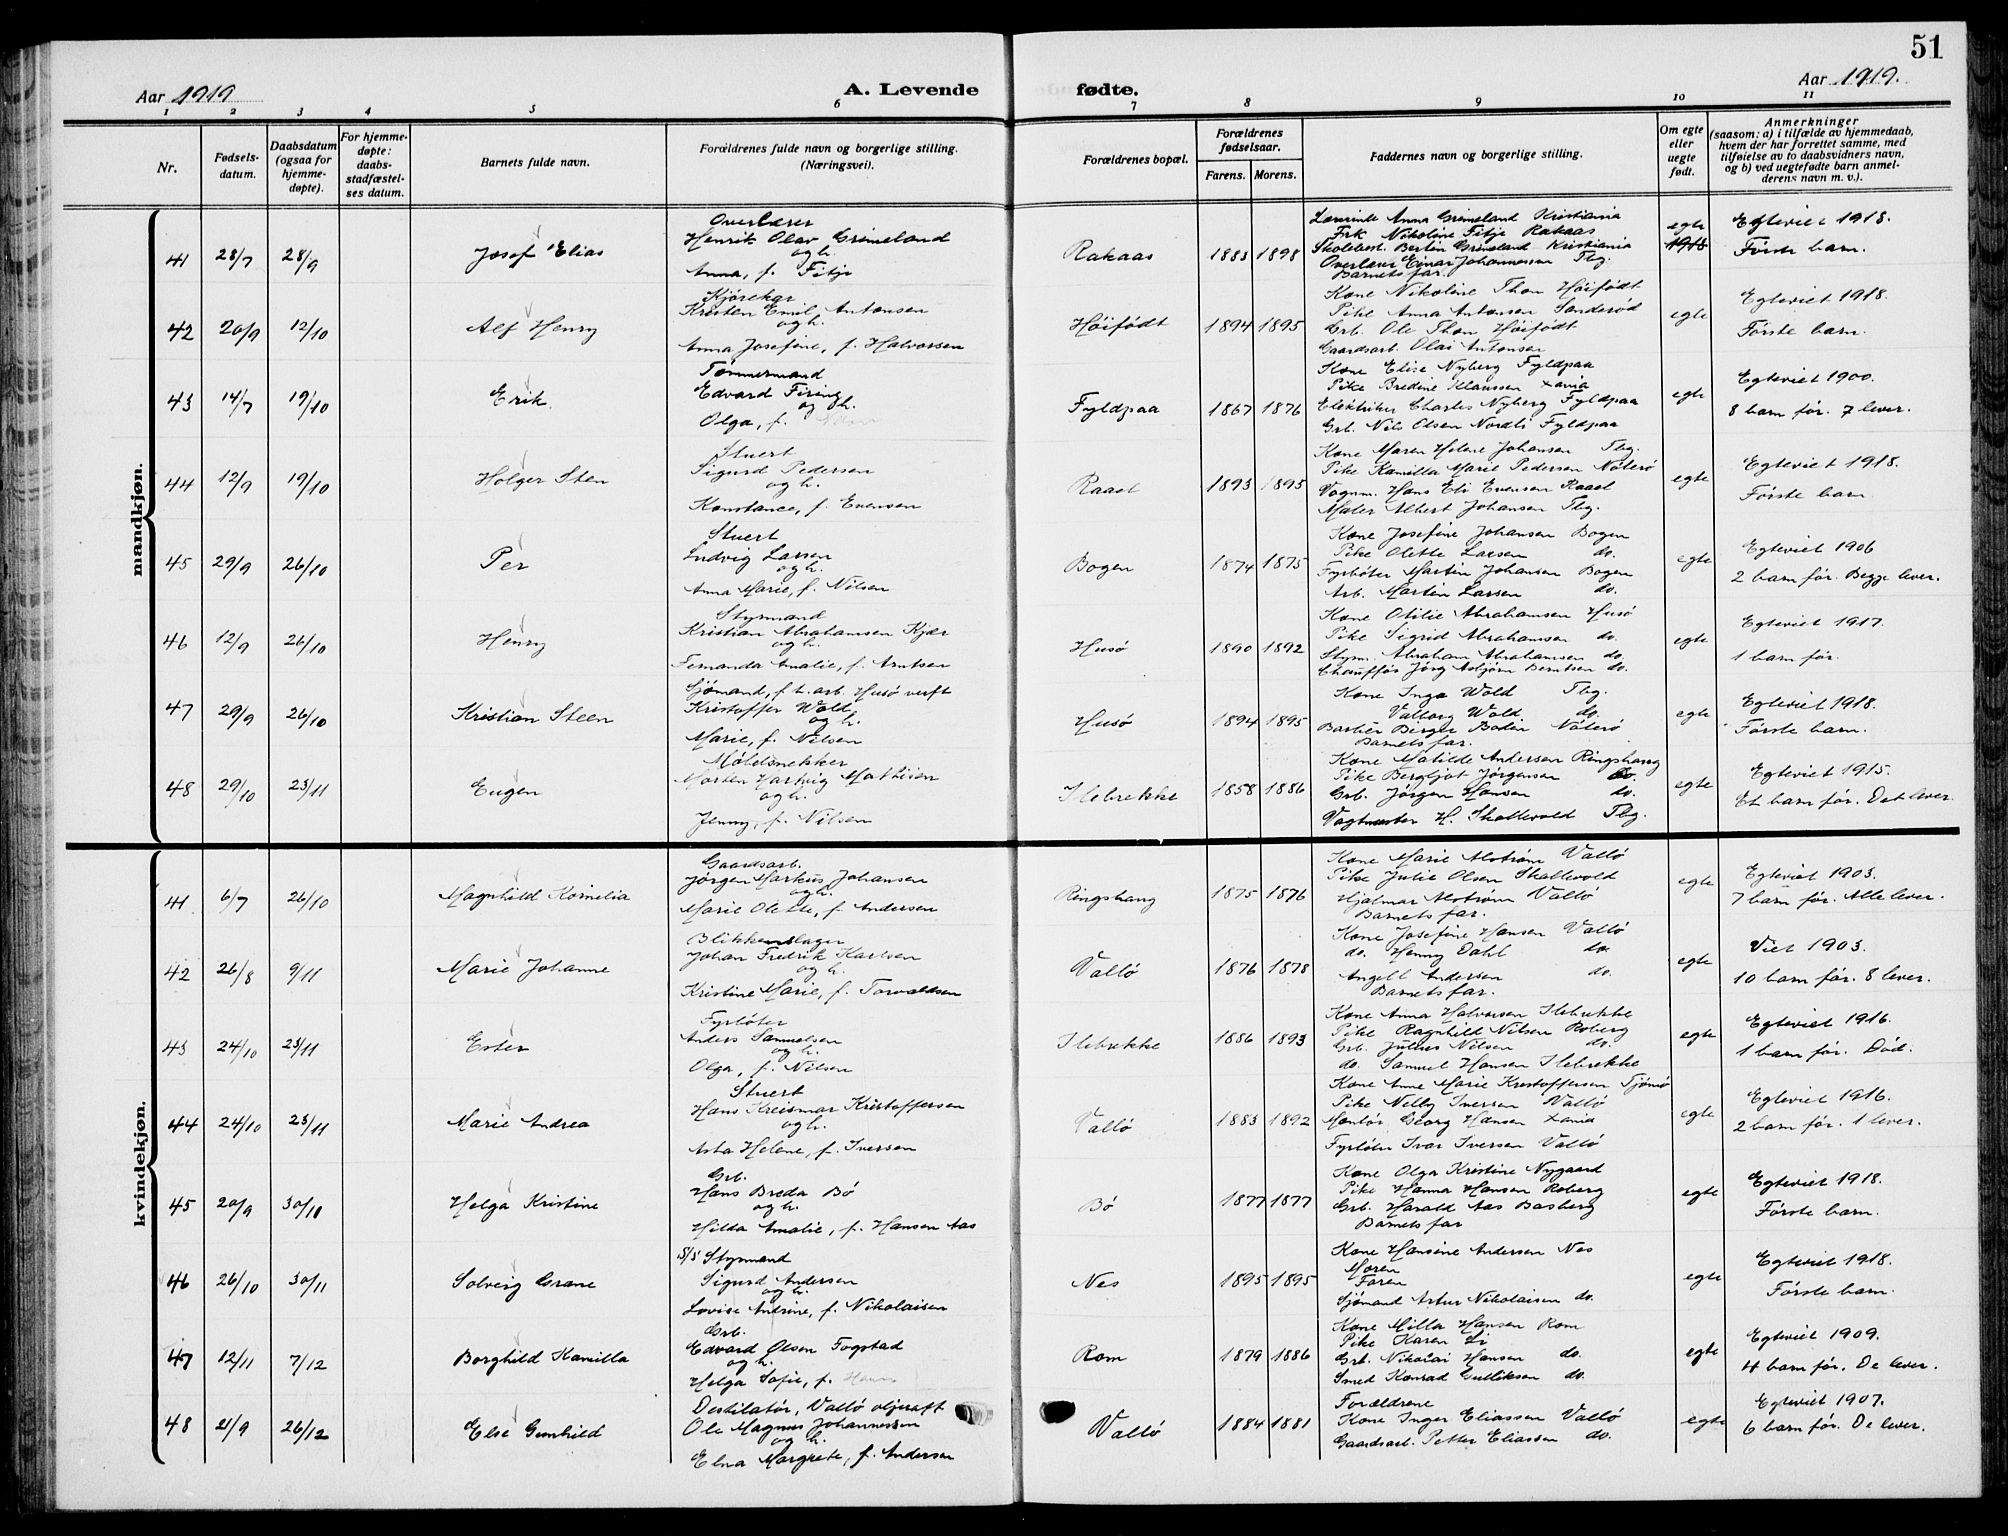 51
Aar 1919
A. Levende
fødte.
Aar 1919.
1 2 3 4 5 6 7 8 9 10 11
Nr.
Fødsels-
datum.
Daabsdatum
(ogsaa for
hjemme-
døpte).
For hjemme-
døpte:
daabs-
stadfæstel-
ses datum.
Barnets fulde navn.
Forældrenes fulde navn og borgerlige stilling.
(Næringsvei).
Forældrenes bopæl.
Forældrenes
fødselsaar.
Farens. Morens.
Faddernes navn og borgerlige stilling.
Om egte
eller
uegte
født.
Anmerkninger
(saasom: a) i tilfælde av hjemmedaab,
hvem der har forrettet samme, med
tilføielse av to daabsvidners navn,
og b) ved uegtefødte barn anmel-
derens navn m. v.).
mandkjøn.
41 28/7 28/9 Josef Elias
Overlærer
Henrik Olav Grimeland
og h.
Anna, f. Fitje
Rakaas 1883 1898
Lærerinde Anna Grimeland Kristiania
Frk Nikoline Fitje Rakaas
Skolebest. Berlin Grimeland Kristiania
Overlærer Einar Johannessen Tbg.
Barnets far.
egte
Egteviet 1918.
Første barn.
42 20/9 12/10 Alf Henry
Kjørekar
Kristen Emil Antonsen
og h.
Anna Josefine, f. Halvorsen
Høifødt 1894 1895
Kone Nikoline Thon Høifødt
Pike Anna Antonsen Sanderød
Grb. Ole Thon Høifødt
Gaardsarb. Olai Antonsen
egte
Egteviet 1918.
Første barn.
43 14/7 19/10 Erik
Tømmermand
Edvard Firing
og h.
Olga, f.
Fyldpaa 1867 1876
Kone Elise Nyberg Fyldpaa
Pike Bredine Klaussen Xania
Elektriker Charles Nyberg Fyldpaa
Grb. Nils Olsen Nordli Fyldpaa
egte
Egteviet 1900.
8 barn før. 7 lever.
44 12/9 19/10 Holger Sten
Stuert
Sigurd Pedersen
og h.
Konstance, f. Evensen
Raael 1893 1895
Kone Maren Helene Johansen Tbg.
Pike Kamilla Marie Pedersen Nøterø
Vognm. Hans Eli Evensen Raael
Maler Albert Johansen Tbg.
egte
Egteviet 1918.
Første barn
45 29/9 26/10 Per
Stuert
Ludvig Larsen
og h.
Anna Marie, f. Nilsen
Bogen 1874 1875
Kone Josefine Johansen Bogen
Pike Olette Larsen do.
Fyrbøter Martin Johansen Bogen
Arb. Martin Larsen do.
egte
Egteviet 1906
2 barn før. Begge lever.
46 12/9 26/10 Henry
Styrmand
Kristian Abrahamsen Kjær
og h.
Fernanda Amalie, f. Arntsen
Husø 1890 1892
Kone Otilie Abrahamsen Husø
Pike Sigrid Abrahamsen do.
Styrm. Abraham Abrahamsen do.
Chauffør Jørg Asbjørn Berntsen do.
egte
Egteviet 1917.
1 barn før.
47 29/9 26/10 Kristian Steen
Sjømand, f. t. arb. Husø verft
Kristoffer Wold
og h.
Marie, f. Nilsen
Husø 1894 1895
Kone Inga Wold Tbg.
Valborg Wold do.
Barber Berger Bodin Nøterø
Barnets far.
egte
Egteviet 1918.
Første barn.
48 29/10 23/11 Eugen
Møbelsnekker
Morten Hartvig Mathisen
og h.
Jenny, f. Nilsen
Ilebrekke 1858 1886
Kone Matilde Andersen Ringshaug
Pike Bergljot Jørgensen do.
Grb. Jørgen Hansen do.
Vagtmester H. Skallevold Tbg.
egte
Egteviet 1915.
Et barn før. Det lever.
kvindekjøn.
41 6/7 26/10 Magnhild Kornelia
Gaardsarb.
Jørgen Markus Johansen
og h.
Marie Olette, f. Andersen
Ringshaug 1875 1876
Kone Marie Alstrøm Vallø
Pike Julie Olsen Skallevold
Hjalmar Alstrøm Vallø
Barnets far.
egte
Egteviet 1903.
7 barn før. Alle lever.
42 26/8 9/11 Marie Johanne
Blikkenslager
Johan Fredrik Karlsen
og h.
Kristine Marie, f. Torvaldsen
Vallø 1876 1878
Kone Josefine Hansen Vallø
do. Henny Dahl do.
Angell Andersen do.
Barnets far.
egte
Viet 1903.
10 barn før. 8 lever.
43 24/10 23/11 Ester
Fyrbøter
Anders Samuelsen
og h.
Olga, f. Nilsen
Ilebrekke 1886 1893
Kone Anna Halvorsen Ilebrekke
Pike Ragnhild Nilsen Roberg
Grb. Julius Nilsen do.
do. Samuel Hansen Ilebrekke
egte
Egteviet 1916.
1 barn før. Død.
44 24/10 23/11 Marie Andrea
Stuert
Hans Kreismar Kristoffersen
og h.
Asta Helene, f. Iversen
Vallø 1883 1892
Kone Anne Marie Kristoffersen Tjømø
Pike Nelly Iversen Vallø
Montør Georg Hansen Xania
Fyrbøter Ivar Iversen Vallø
egte
Egteviet 1916.
2 barn før. 1 lever.
45 20/9 30/11 Helga Kristine
Grb.
Hans Breda Bø
og h.
Hilda Amalie, f. Hansen Aas
Bø 1877 1877
Kone Olga Kristine Nygaard
Pike Hanna Hansen Roberg
Grb. Harald Aas Basberg
Barnets far
egte
Egteviet 1918.
Første barn.
46 26/10 30/11 Solveig Grane
S/S Styrmand
Sigurd Andersen
og h.
Lovise Andrine, f. Nikolaisen
Nes 1895 1895
Kone Hansine Andersen Nes
Moren
Faren
Sjømand Artur Nikolaisen do.
egte
Egteviet 1918.
Første barn.
47 12/11 7/12 Borghild Kamilla
Grb.
Edvard Olsen Fogstad
og h.
Helga Sofie, f.
Rom 1879 1886
Kone Milla Hansen Rom
Pike Karen Li
Grb. Nikolai Hansen do.
Smed Konrad Gulliksen do.
egte
Egteviet 1909.
4 barn før. De lever.
48 21/9 26/12 Else Gunhild
Destilatør, Vallø oljeraff
Ole Magnus Johannessen
og h.
Elna Margrete, f. Andersen
Vallø 1884 1881
Forældrene
Kone Inger Eliassen Vallø
Gaardsarb. Petter Eliassen do.
egte
Egteviet 1907.
6 barn før. De lever.